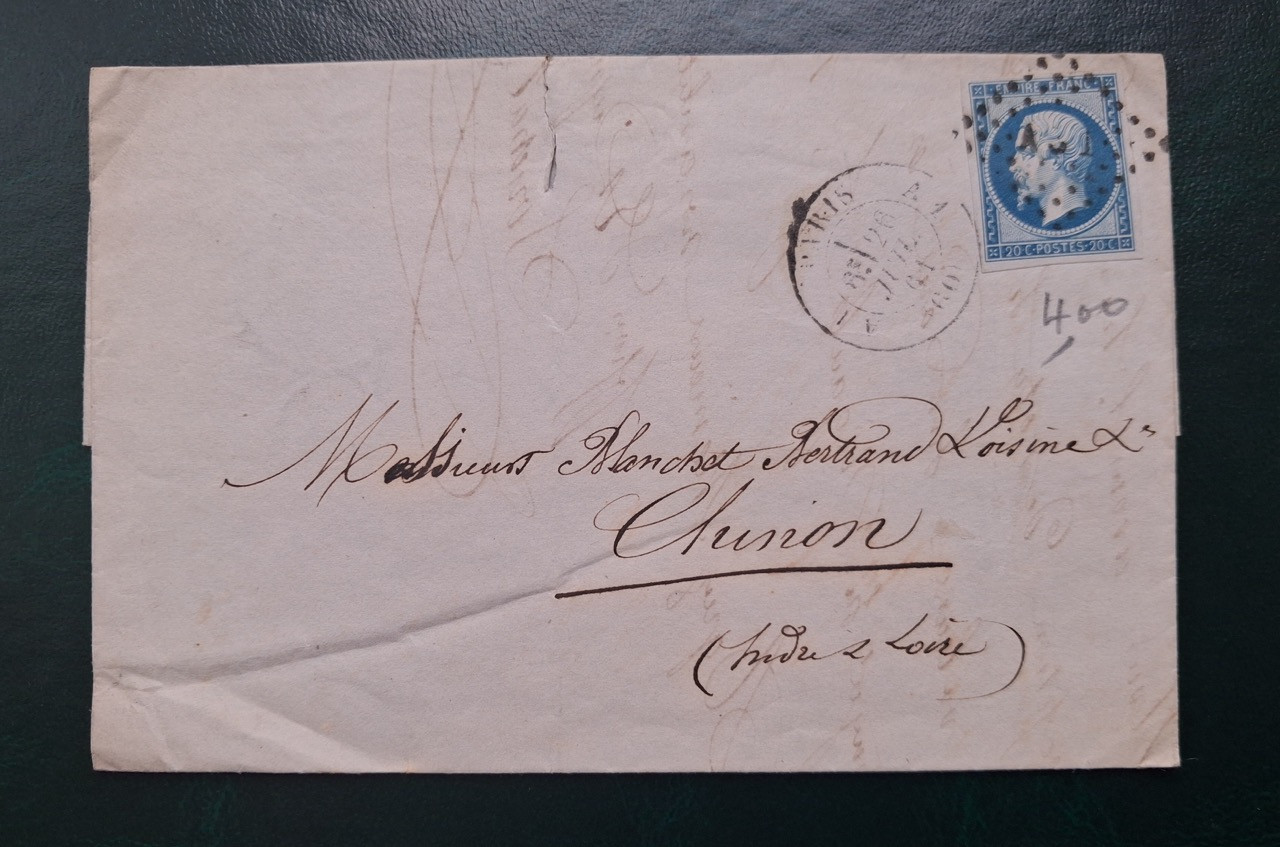 EMPIRE FRANC.
20 C·POSTES·20 C
PARIS
26
JUIL.
61
(60)
4,00
Messieurs Blanchet Bertrand Loisine &
Chinon
(Indre & Loire)